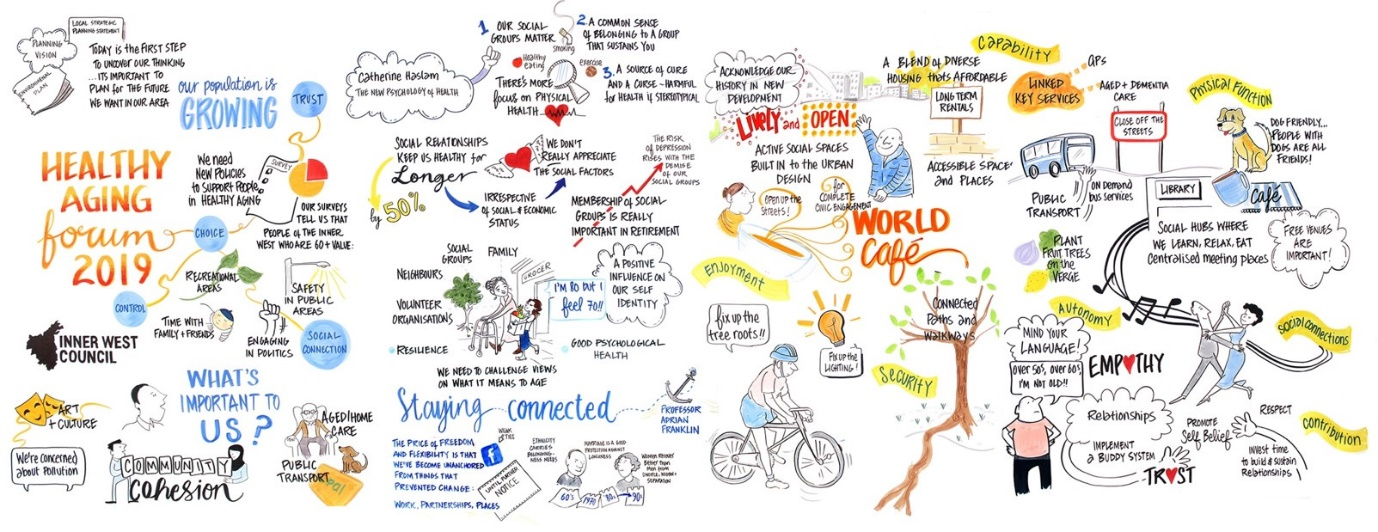 LOCAL STRATEGIC
PLANNING STATEMENT
PLANNING
VISION
ENVIRONMENTAL
PLAN
TODAY is the FIRST STEP
TO UNCOVER OUR THINKING
...ITS IMPORTANT TO
PLAN for THE FUTURE
WE WANT IN OUR AREA
our population is
GROWING
TRUST
HEALTHY
AGING
forum
2019
We need
New Policies
to SUPPORT PEOPLE
in HEALTHY AGING
SURVEY
OUR SURVEYS
TELL US THAT
PEOPLE OF THE INNER
WEST WHO ARE 60+ VALUE:
CHOICE
RECREATIONAL
AREAS
SAFETY
IN PUBLIC
AREAS
CONTROL
TIME WITH
FAMILY + FRIENDS
ENGAGING
IN POLITICS
SOCIAL
CONNECTION
INNER WEST
COUNCIL
WHAT'S
IMPORTANT TO
US?
ART
+ CULTURE
We're CONCERNED
about POLLUTION
COMMUNITY
cohesion
AGED/HOME
CARE
PUBLIC
TRANSPORT
Opal
Catherine Haslam
THE NEW PSYCHOLOGY OF HEALTH
1. OUR SOCIAL
GROUPS MATTER
2. A COMMON SENSE
of BELONGING TO A GROUP
THAT SUSTAINS YOU
smoking
Healthy
eating
EXERCISE
THERE'S MORE
focus on PHYSICAL
HEALTH
3. A SOURCE of CURE
AND A CURSE - HARMFUL
for HEALTH if STEREOTYPICAL
SOCIAL RELATIONSHIPS
KEEP US HEALTHY for
Longer
by 50%
WE DON'T
REALLY APPRECIATE
THE SOCIAL FACTORS
IRRESPECTIVE
OF SOCIAL & ECONOMIC
STATUS
THE RISK
OF DEPRESSION
RISES WITH THE
DEMISE
OF OUR
SOCIAL GROUPS
MEMBERSHIP OF SOCIAL
GROUPS IS REALLY
IMPORTANT IN RETIREMENT
SOCIAL
GROUPS
FAMILY
NEIGHBOURS
VOLUNTEER
ORGANISATIONS
RESILIENCE
GROCER
I'M 80 but I
feel 70!!
A POSITIVE
INFLUENCE ON
OUR SELF
IDENTITY
GOOD PSYCHOLOGICAL
HEALTH
WE NEED TO CHALLENGE VIEWS
ON WHAT IT MEANS TO AGE
Staying connected
PROFESSOR
ADRIAN
FRANKLIN
THE PRICE of FREEDOM
AND FLEXIBILITY IS THAT
WE'VE BECOME UNANCHORED
FROM THINGS THAT
PREVENTED CHANGE:
WORK, PARTNERSHIPS, PLACES
WEAK
TIES
f
UNTIL FURTHER
NOTICE
ETHNICITY
CARRIES
BELONGING-
NESS NEEDS
MARRIAGE IS A GOOD
PROTECTION AGAINST
LONELINESS
WOMEN RECOVER
Better than
Men from
DIVORCE, WIDOW &
SEPARATION
60's
1970
80's
90's
ACKNOWLEDGE OUR
HISTORY IN NEW
DEVELOPMENT
A BLEND of DIVERSE
HOUSING thats AFFORDABLE
LIVELY and OPEN
LONG TERM
RENTALS
ACTIVE SOCIAL SPACES
BUILT IN to THE URBAN
DESIGN
ACCESSIBLE SPACE
and PLACES
open up the
Streets!
for
COMPLETE
CIVIC ENGAGEMENT
WORLD
Café
ENJOYMENT
fix up the
tree roots!!
Fix up the
LIGHTING!
SECURITY
CONNECTED
Paths and
walkways
CAPABILITY
LINKED
KEY SERVICES
GPs
AGED + DEMENTIA
CARE
PHYSICAL FUNCTION
CLOSE OFF THE
STREETS
DOG FRIENDLY...
PEOPLE WITH
DOGS ARE ALL
FRIENDS!
PUBLIC
TRANSPORT
ON DEMAND
bus services
LIBRARY
Café
SOCIAL HUBS WHERE
WE LEARN, RELAX, EAT
Centralised meeting places
FREE VENUES
ARE
IMPORTANT!
PLANT
FRUIT TREES
on the
VERGE
AUTONOMY
SOCIAL CONNECTIONS
MIND YOUR
LANGUAGE!
OVER 50's, OVER 60's
I'M NOT OLD!!
EMPATHY
Relationships
IMPLEMENT
a BUDDY SYSTEM
PROMOTE
Self Belief
RESPECT
TRUST
INVEST time
to build & sustain
Relationships
Contribution